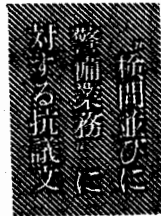 〝検問並びに
警備業務〟に
対する抗議文